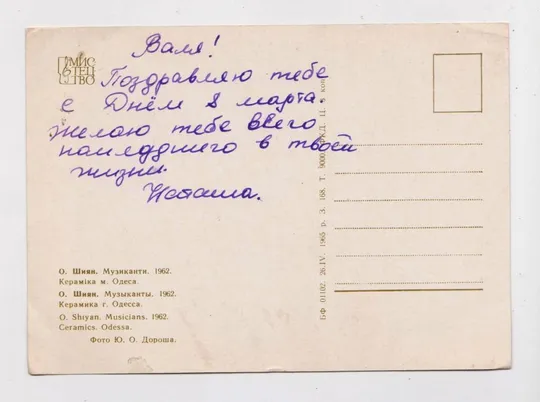 МИС
ТЕЦ
ТВО
Валя!
Поздравляю тебе
с Днём 8 марта.
желаю тебе всего
наилудшего в твоей
жизни.
Наташа.
О. Шиян. Музиканти. 1962.
Кераміка м. Одеса.
О. Шиян. Музыканты. 1962.
Керамика г. Одесса.
O. Shiyan. Musicians. 1962.
Ceramics. Odessa.
Фото Ю. О. Дороша.
БФ 01102. 26.IV. 1965 р. З. 168. Т. 9000 Ц. 3 коп.